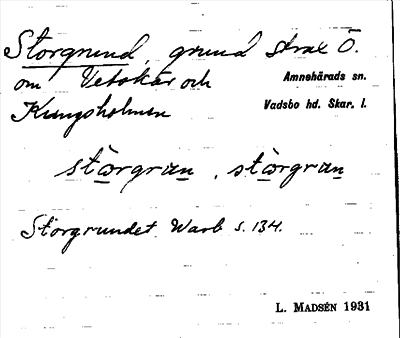 Storgrund, grund strax Ö.
om Vetskär och Amnehärads sn.
Kungsholmen Vadsbo hd. Skar. l.
stòrgrun, stòrgrun
Storgrundet Warb s. 134.
L. MADSÉN 1931